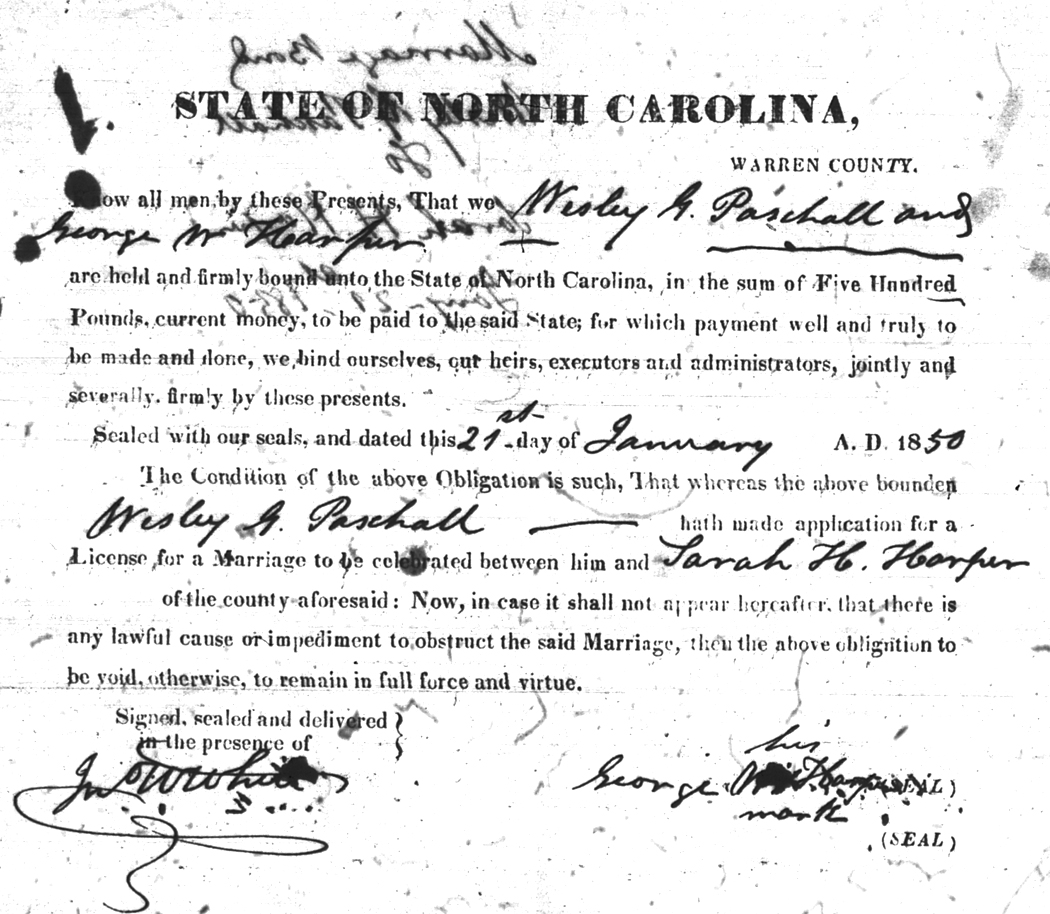 Marriage Bond
STATE OF NORTH CAROLINA,
To
WARREN COUNTY.
Know all men by these Presents, That we Wesley G. Paschall and
George W Harper
are held and firmly bound unto the State of North Carolina, in the sum of Five Hundred
Pounds, current money, to be paid to the said State; for which payment well and truly to
be made and done, we bind ourselves, our heirs, executors and administrators, jointly and
severally, firmly by these presents.
Sealed with our seals, and dated this 21st day of January A. D. 1850
The Condition of the above Obligation is such, That whereas the above bounden
Wesley G. Paschall hath made application for a
License for a Marriage to be celebrated between him and Sarah H. Harper
of the county aforesaid: Now, in case it shall not appear hereafter, that there is
any lawful cause or impediment to obstruct the said Marriage, then the above obligation to
be void, otherwise, to remain in full force and virtue.
Signed, sealed and delivered
in the presence of
his
George Harper (SEAL)
mark
(SEAL)